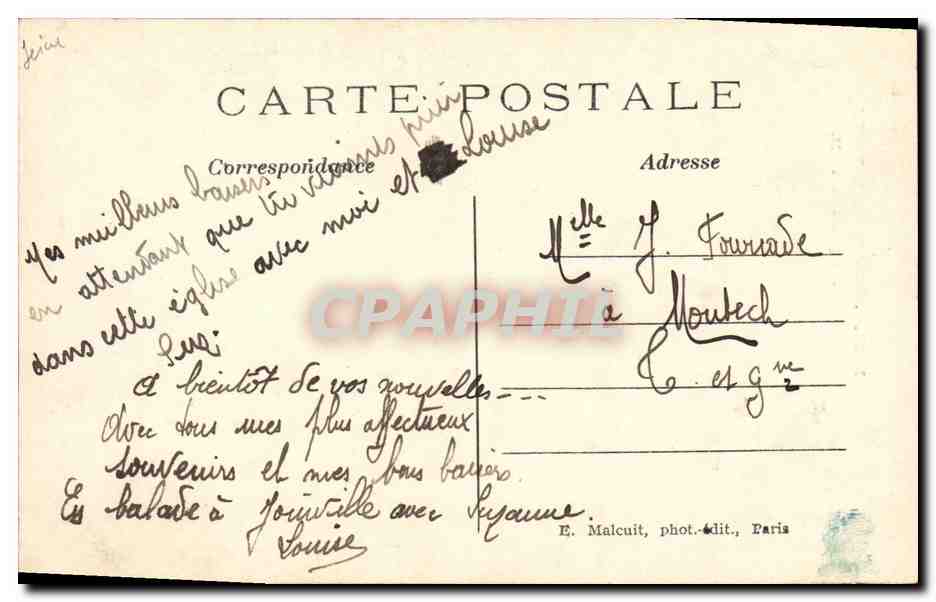 Seine
CARTE POSTALE
Correspondance
Adresse
Mes meilleurs baisers
en attendant que tu viennes prier
dans cette église avec moi et Louise
Suzi
A bientôt de vos nouvelles ---
avec tous mes plus affectueux
souvenirs et mes bons baisers.
En balade à Joinville avec Suzanne.
Louise
Melle J. Fourcade
à Montech
T. et Gne
CPAPHIL
E. Malcuit, phot.-édit., Paris